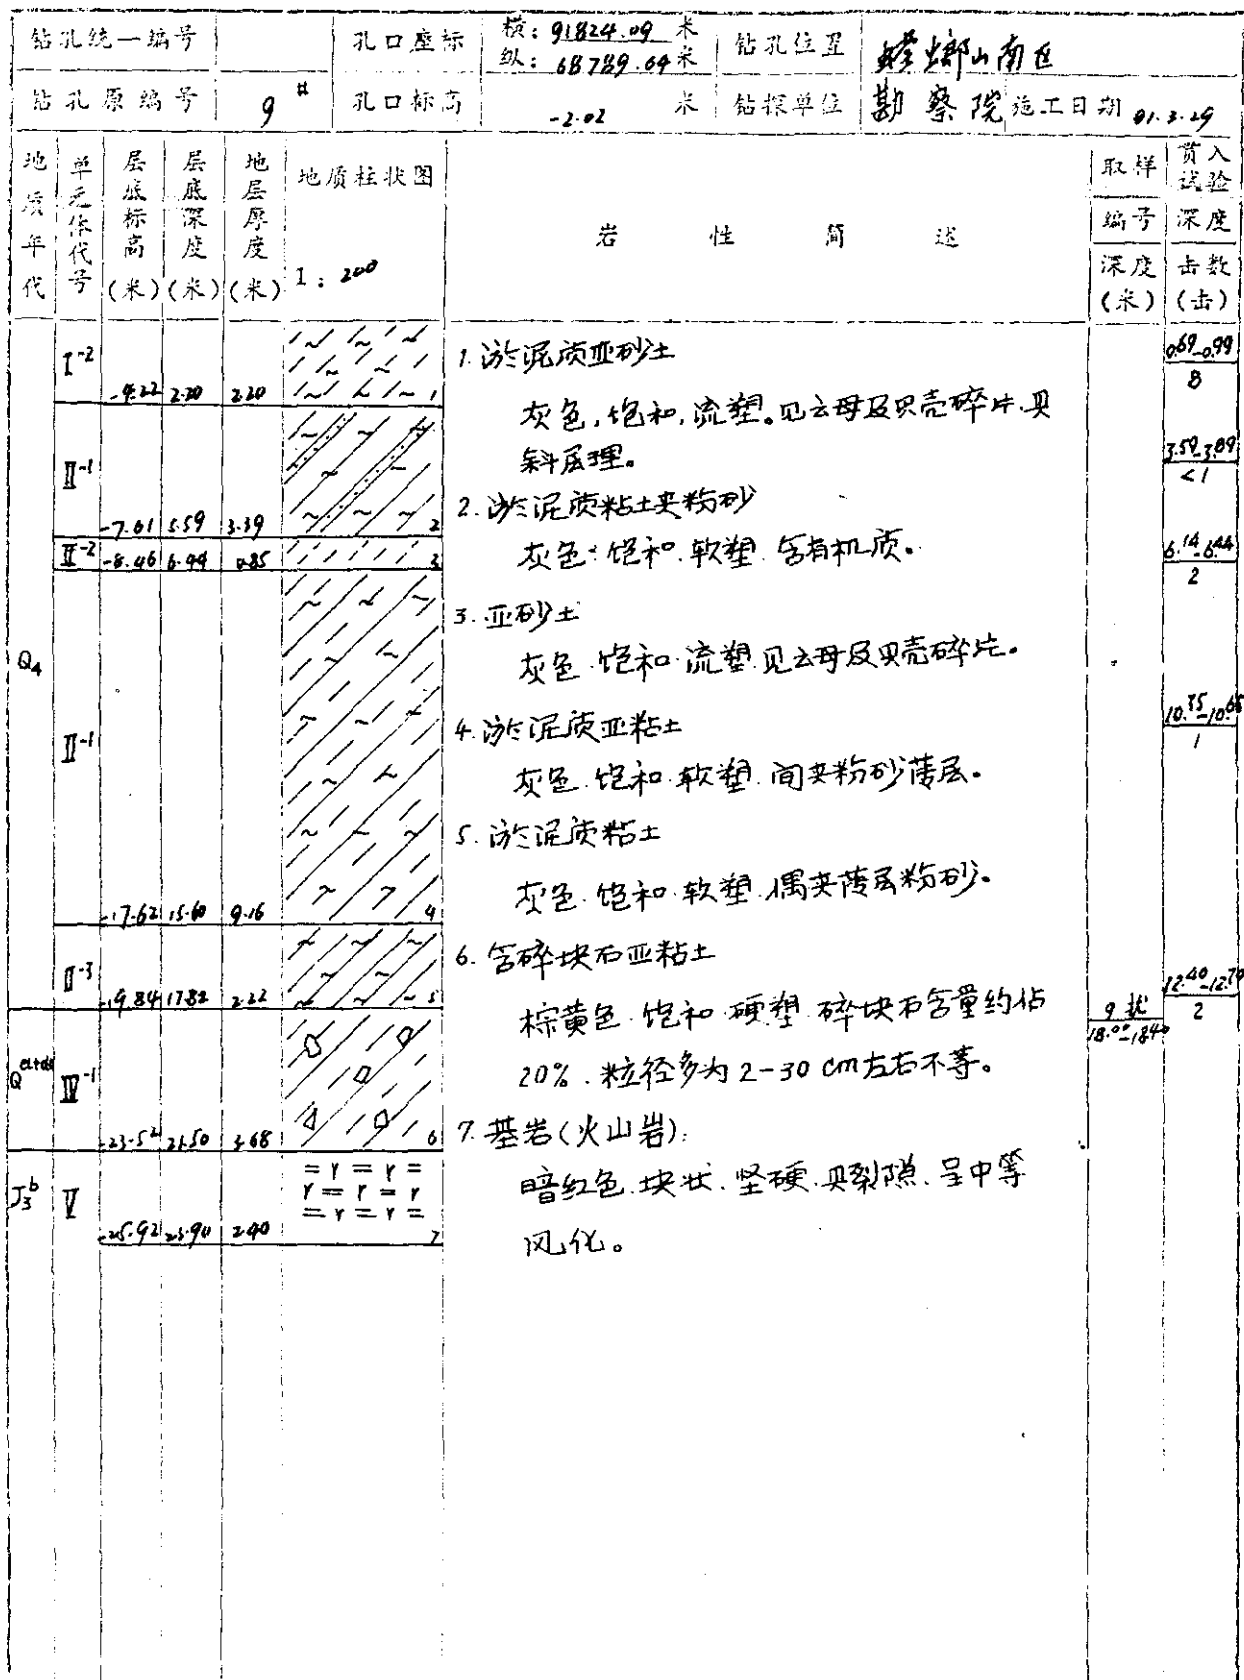 钻孔统一编号 孔口座标 横：91824.09 米 钻孔位置 螳螂山南区
纵：68789.64 米
钻孔原编号 9# 孔口标高 -2.02 米 钻探单位 勘察院 施工日期 01.3.29
地质年代 单元体代号 层底标高(米) 层底深度(米) 地层厚度(米) 地质柱状图 1：200 岩性简述 取样 编号 深度(米) 贯入试验 深度 击数(击)
I-2 -4.22 2.20 2.20 1
II-1 -7.61 5.59 3.39 2
II-2 -8.46 6.44 0.85 3
Q4
II-1 -17.62 15.60 9.16 4
II-3 -19.84 17.82 2.22 5
Q el+dl IV-1 -23.52 21.50 3.68 6
J3b V -25.92 23.90 2.40 7
1. 淤泥质亚砂土
灰色，饱和，流塑。见云母及贝壳碎片.具
斜层理。
2. 淤泥质粘土夹粉砂
灰色.饱和.软塑.含有机质。
3. 亚砂土
灰色.饱和.流塑.见云母及贝壳碎片。
4. 淤泥质亚粘土
灰色.饱和.软塑.间夹粉砂薄层。
5. 淤泥质粘土
灰色.饱和.软塑.偶夹薄层粉砂。
6. 含碎块石亚粘土
棕黄色.饱和.硬塑.碎块石含量约佔
20%.粒径多为2-30cm左右不等。
7. 基岩(火山岩):
暗红色.块状.坚硬.具裂隙.呈中等
风化。
9扰
18.00-18.40
0.69-0.99
8
3.59-3.89
<1
6.14-6.44
2
10.35-10.65
1
12.40-12.70
2